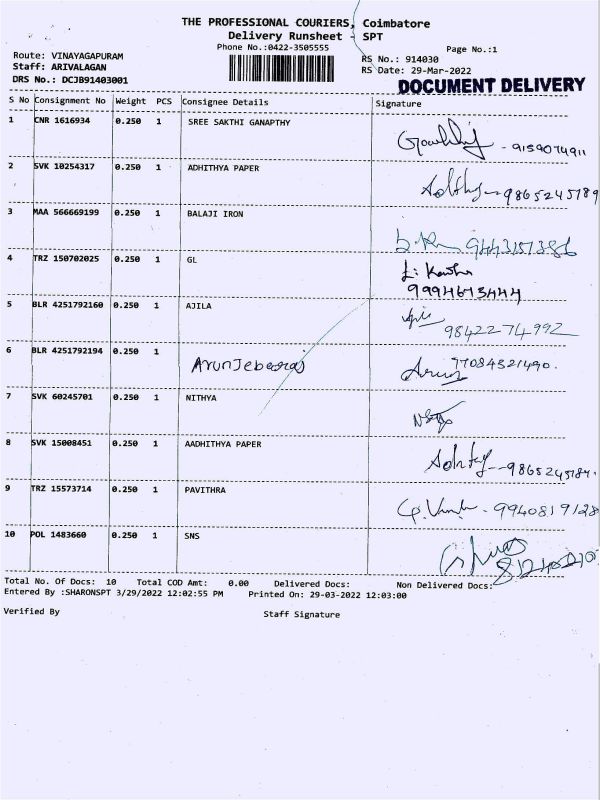 THE PROFESSIONAL COURIERS, Coimbatore
Delivery Runsheet - SPT
Phone No.:0422-3505555
Page No.:1
Route: VINAYAGAPURAM
Staff: ARIVALAGAN
DRS No.: DCJB91403001
RS No.: 914030
RS Date: 29-Mar-2022
DOCUMENT DELIVERY
S No Consignment No Weight PCS Consignee Details Signature
1 CNR 1616934 0.250 1 SREE SAKTHI GANAPTHY - 9159074911
2 SVK 10254317 0.250 1 ADHITHYA PAPER - 9865245189
3 MAA 566669199 0.250 1 BALAJI IRON 9443157386
4 TRZ 150702025 0.250 1 GL
9994673444
5 BLR 4251792160 0.250 1 AJILA 9842274992
6 BLR 4251792194 0.250 1 ArunJebaraj Arun 77084321490.
7 SVK 60245701 0.250 1 NITHYA
8 SVK 15008451 0.250 1 AADHITHYA PAPER - 9865245184.
9 TRZ 15573714 0.250 1 PAVITHRA - 9940819128
10 POL 1483660 0.250 1 SNS
Total No. Of Docs: 10 Total COD Amt: 0.00 Delivered Docs: Non Delivered Docs:
Entered By :SHARONSPT 3/29/2022 12:02:55 PM Printed On: 29-03-2022 12:03:00
Verified By Staff Signature